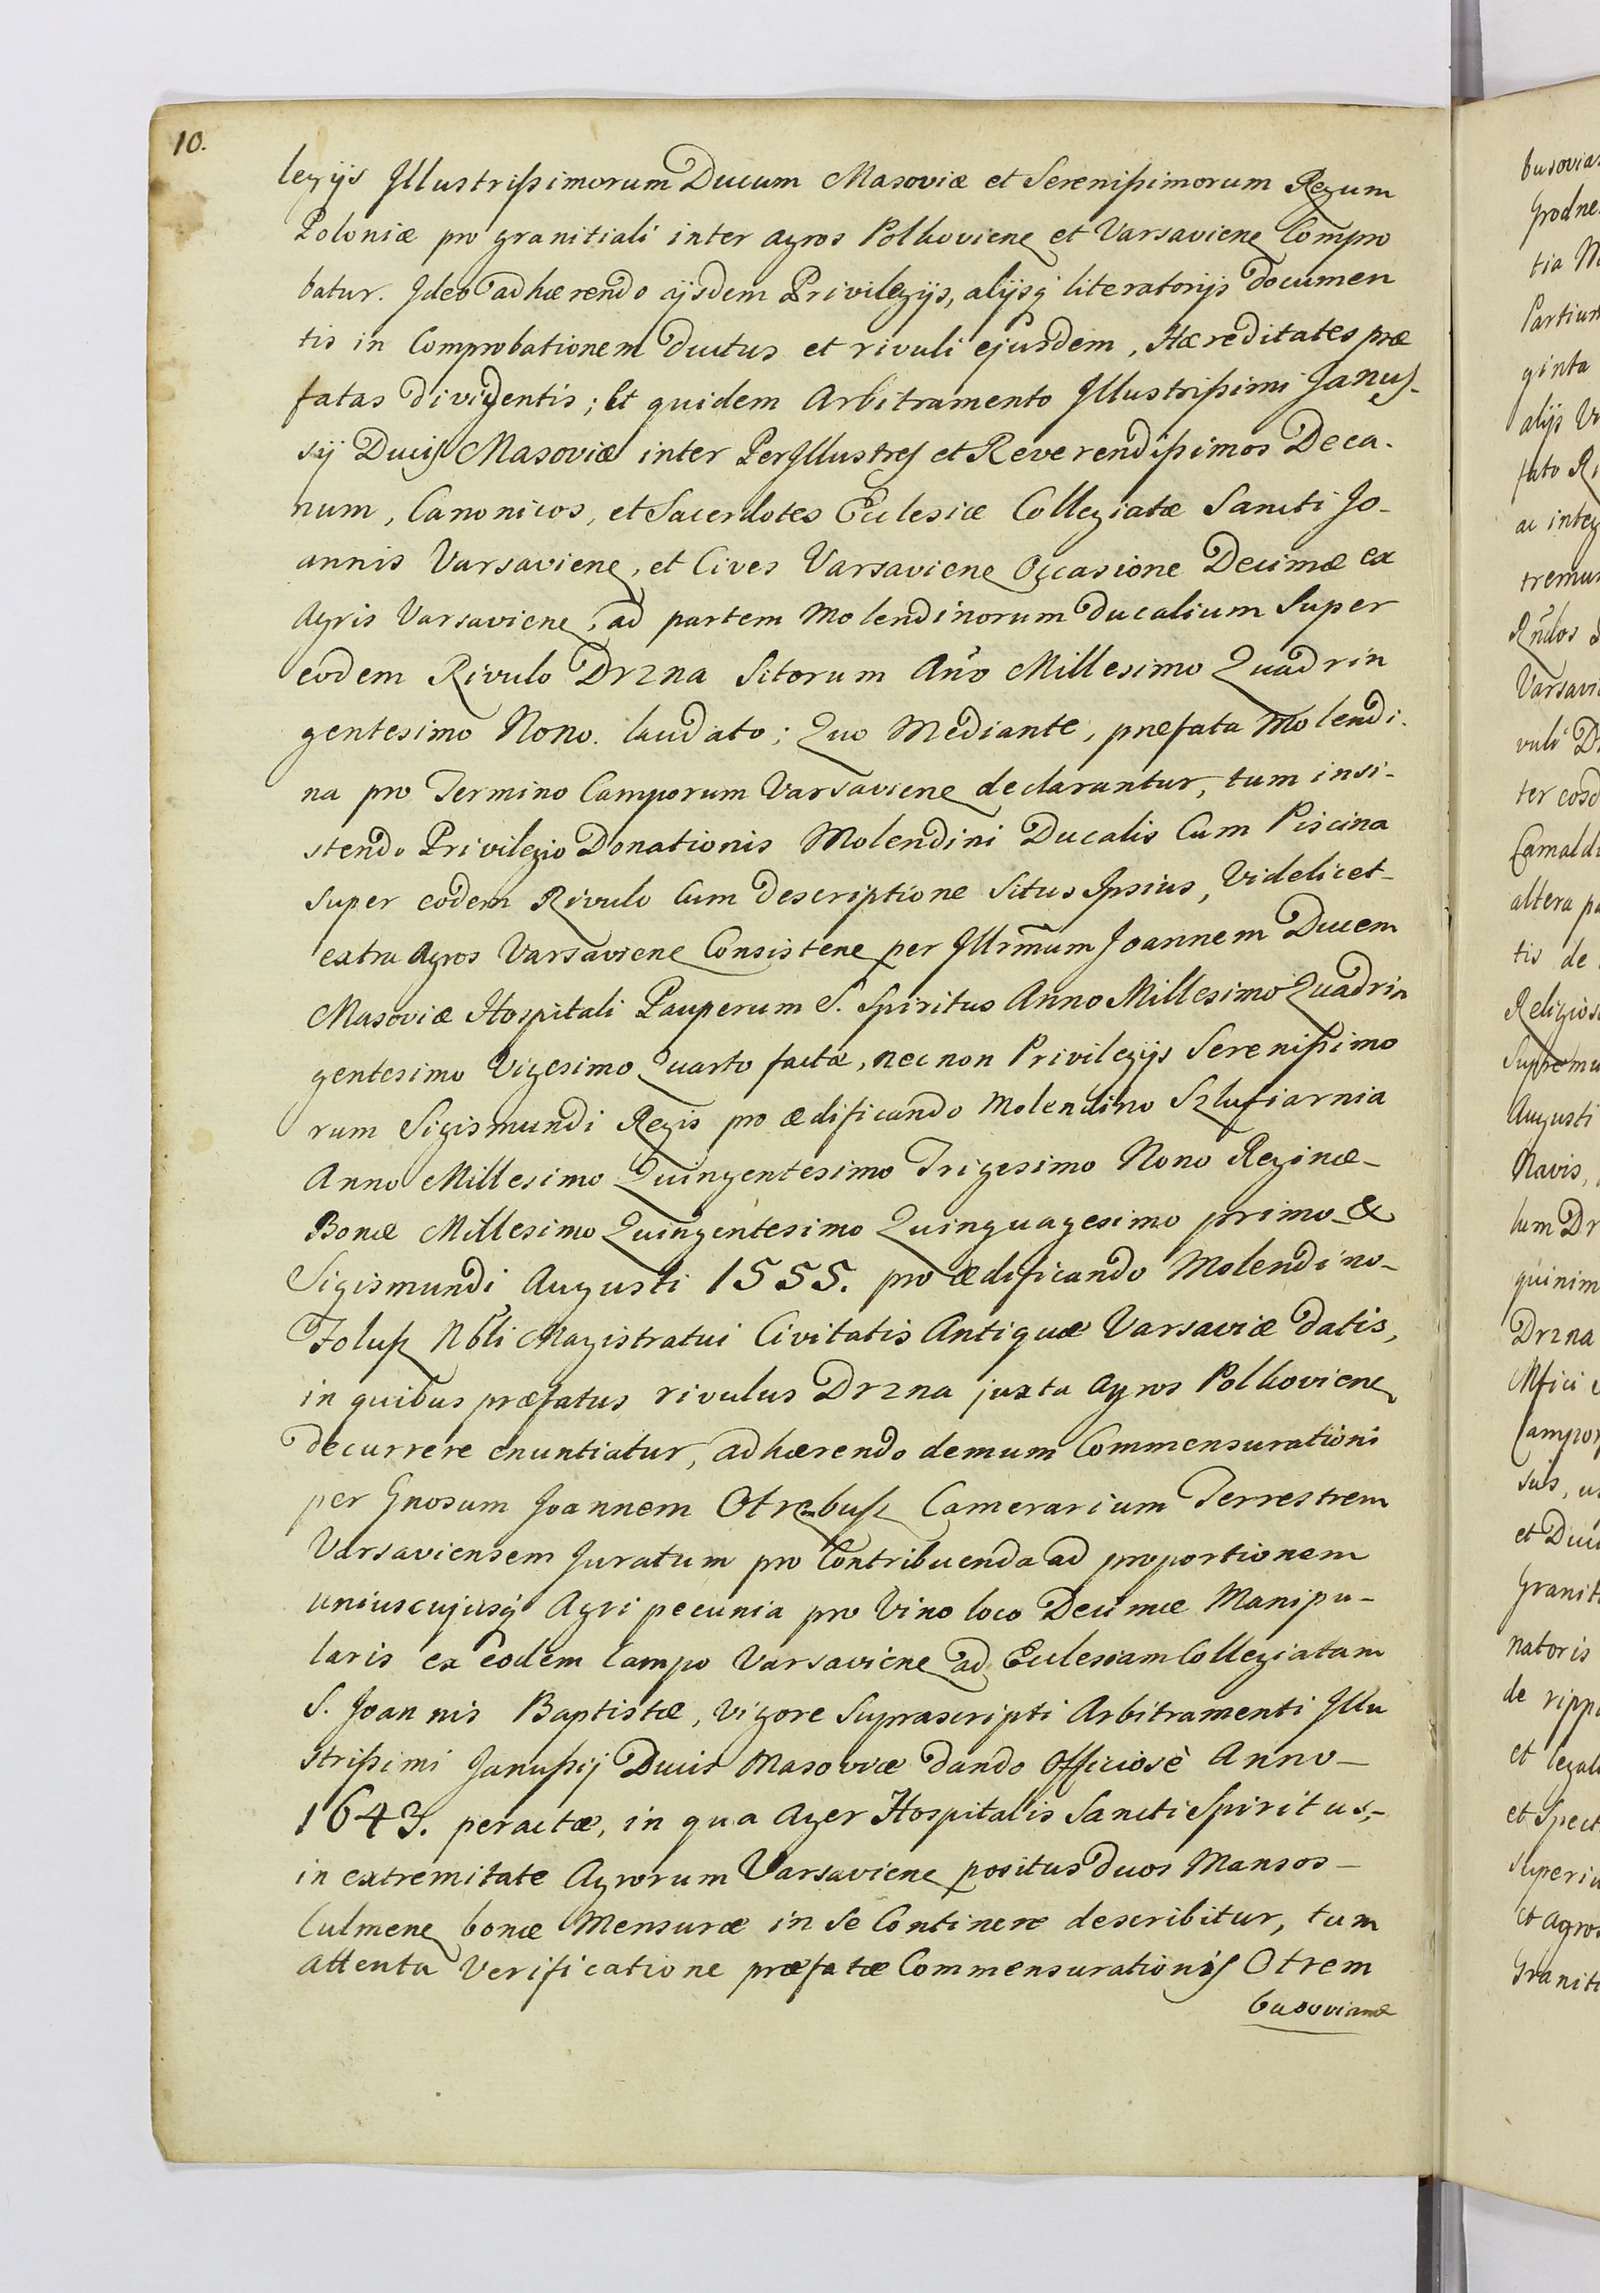 10.
legijs Jllustrißimorum Ducum Masoviæ et Serenißimorum Regum
Poloniæ pro granitiali inter agros Polkoviens et Varsaviens Compro
batur. Jdeo adhærendo ijsdem Privilegijs, alijsq literatorijs documen
tis in Comprobationem ductus et rivuli ejusdem, Hæreditates præ
fatas dividentis; Et quidem Arbitramento Jllustrißimi Janus-
sij Ducis Masoviæ inter PerJllustres et Reverendißimos Deca-
num, Canonicos, et Sacerdotes Ecclesiæ Collegiatæ Sancti Jo-
annis Varsaviens, et Cives Varsaviens Occasione Decimæ ex
Agris Varsaviens, ad partem Molendinorum Ducalium Super
eodem Rivulo Drzna Sitorum Año Millesimo Quadrin
gentesimo Nono. laudato; Quo Mediante, præfata Molendi-
na pro Termino Camporum Varsaviens declarantur, tum insi-
stendo Privilegio Donationis Molendini Ducalis Cum Piscina
Super eodem Rivulo Cum descriptione Situs Jpsius, Videlicet-
extra Agros Varsaviens Consistens per Jllrm̃um Joannem Ducem
Masoviæ Hospitali Pauperum S. Spiritus Anno Millesimo Quadrin
gentesimo Vigesimo Quarto factæ, nec non Privilegijs Serenißimo
rum Sigismundi Regis pro ædificando Molendino Szlufiarnia
Anno Millesimo Quingentesimo Trigesimo Nono Reginæ-
Bonæ Millesimo Quingentesimo Quinquagesimo primo &
Sigismundi Augusti 1555. pro ædificando Molendino-
Folusz Nbli Magistratui Civitatis Antiquæ Varsaviæ datis,
in quibus præfatus rivulus Drzna juxta Agros Polkoviens
decurrere enuntiatur, adhærendo demum Commensurationi
per Gnosum Joannem Otrembusz Camerarium Terrestrem
Varsaviensem Juratum pro Contribuenda ad proportionem
uniuscujusq Agri pecunia pro Vino loco Decimæ Manipu-
laris ex eodem Campo Varsaviens ad Ecclesiam Collegiatam
S. Joannis Baptistæ, Vigore Suprascripti Arbitramenti Jllu
strißimi Janußij Ducis Masoviæ dando Officiosè Anno-
1643. peractæ, in qua Ager Hospitalis Sancti Spiritus,-
in extremitate Agrorum Varsaviens positus duos Mansos-
Culmens bonæ Mensuræ in Se Continere describitur, tum
attenta Verificatione præfatæ Commensurationis Otrem
busovianæ
busovia
Grodne
tia M
Partium
ginta
alijs V
fato R
ac integ
tremu
Rndos
Varsavi
vuli D
ter eosd
Camald
altera p
tis de
Religios
Supremu
Augusti
Navis,
lum Dr
quinim
Drzna
Campor
suis, u
et Duc
Granit
natoris
de ripp
et legal
et Spect
Superiu
et agros
Granit